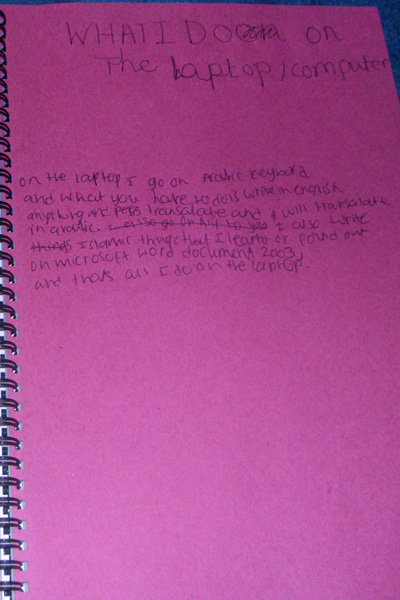 WHAT I DO on
The laptop/computer
on the laptop I go on Arabic keybord
and what you have to do is write in english
anything and transalate and it will transalate
in arabic. I also go on I also write
things Islamic things that I learnt or found out
on microsoft word document 2003,
and thats all I do on the laptop.